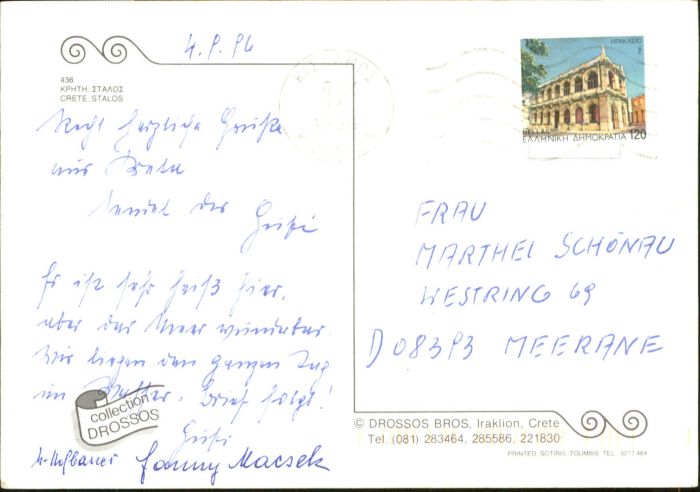 4.9.96
436
ΚΡΗΤΗ: ΣΤΑΛΟΣ
CRETE STALOS
Recht herzliche Grüße
aus Kreta
sendet dir
Gusti
Es ist sehr heiß hier,
aber das Meer wunderbar.
Wir liegen den ganzen Tag
im Brief folgt!
Gusti
Fanny Macsek
collection
DROSSOS
ΗΡΑΚΛΕΙΟ
HELLAS
ΕΛΛΗΝΙΚΗ ΔΗΜΟΚΡΑΤΙΑ 120
FRAU
MARTHEL SCHÖNAU
WESTRING 69
D 08393 MEERANE
© DROSSOS BROS, Iraklion, Crete
Tel. (081) 283464, 285586, 221830
PRINTED SOTIRIS TOUMBIS TEL 3217 484